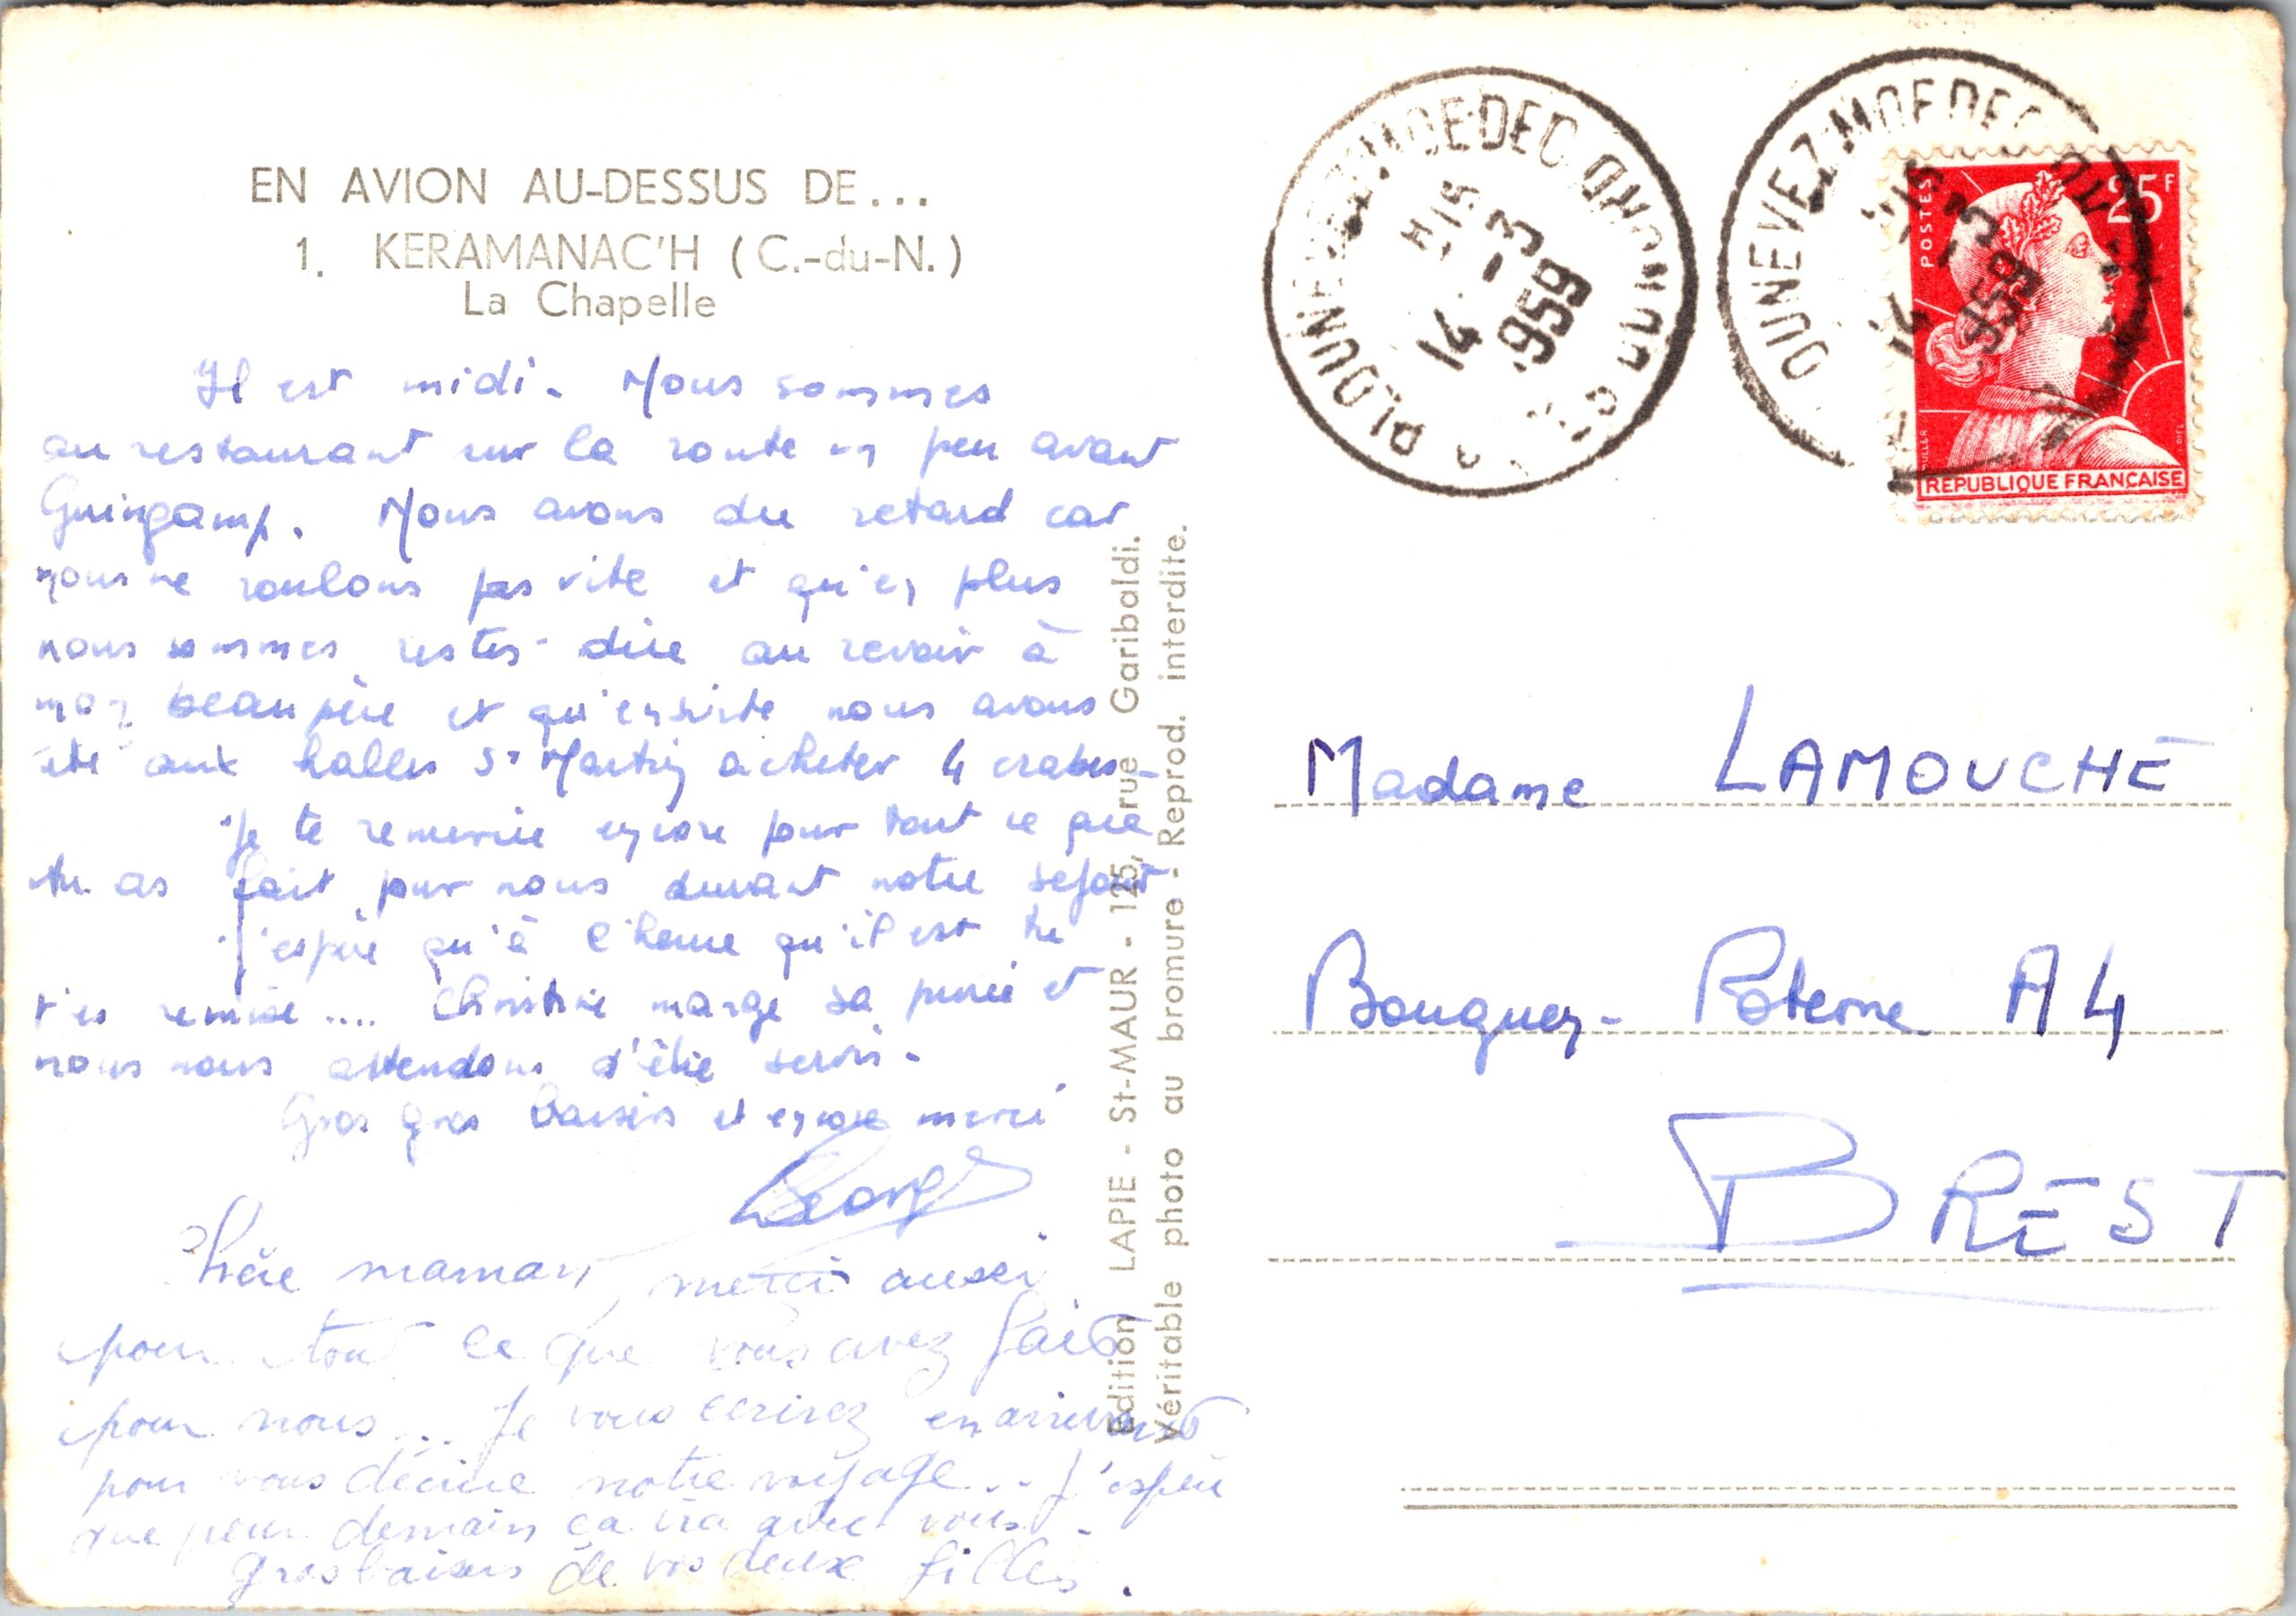 EN AVION AU-DESSUS DE...
1. KERAMANAC'H (C.-du-N.)
La Chapelle
Il est midi. Nous sommes
au restaurant sur la route un peu avant
Guingamp. Nous avons du retard car
nous ne roulons pas vite et qu'en plus
nous sommes restés dire au revoir à
mon beau père et qu'ensuite nous avons
été aux halles St Martin acheter 4 crabes -
Je te remercie encore pour tout ce que
tu as fait pour nous durant notre séjour
J'espère qu'à l'heure qu'il est tu
t'es remise .... Christine mange sa purée et
nous nous attendons d'être servis -
Gros gros baisers et encore merci
Chère maman, merci aussi
pour tout ce que vous avez fait
pour nous... Je vous écrirez en arrivant
pour vous décrire notre voyage... J'espère
que pour demain ça ira avec vous. -
gros baisers de vos deux filles.
Edition LAPIE - St-MAUR - 125, rue Garibaldi.
Véritable photo au bromure - Reprod. interdite.
14 -3
1959
OUNEVEZ-MOEDEC
14 -3
1959
POSTES
25F
REPUBLIQUE FRANÇAISE
Madame LAMOUCHE
Bouguen - Poterne A4
BREST